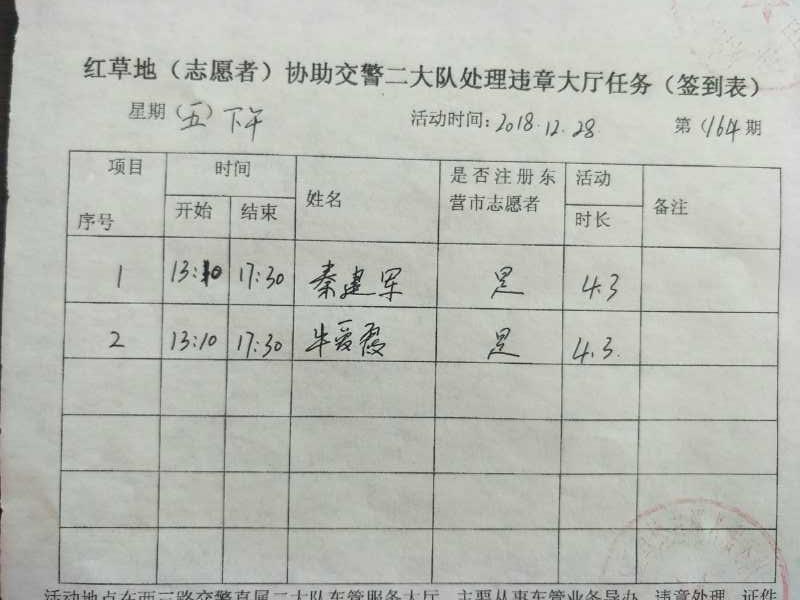 红草地（志愿者）协助交警二大队处理违章大厅任务（签到表）
星期（五）下午 活动时间：2018.12.28. 第（164期
项目 时间 姓名 是否注册东 活动 备注
序号 开始 结束 营市志愿者 时长
1 13:10 17:30 秦建军 是 4.3
2 13:10 17:30 牛爱霞 是 4.3.
活动地点在西三路交警直属二大队车管服务大厅，主要从事车管业务导办、违章处理、证件